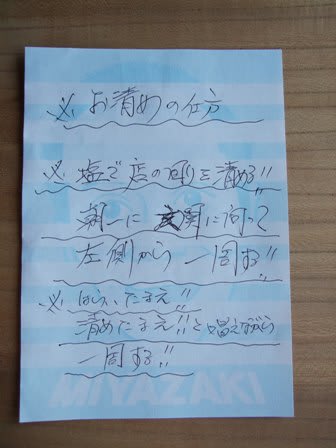 ※ お清めの仕方
※ 塩で店の周りを清める!!
朝一に玄関に向って
左側から 一周する!!
※ はらいたまえ!!
清めたまえ!!と唱えながら
一周する!!
MIYAZAKI